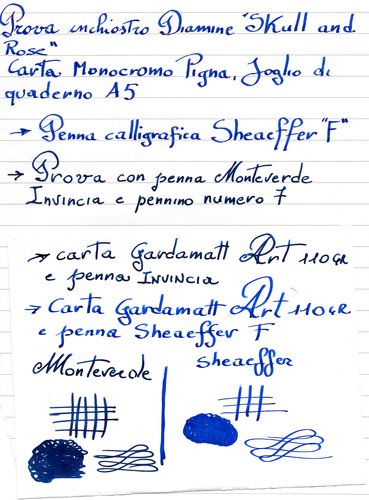 Prova inchiostro Diamine "Skull and
Rose"
Carta Monocromo Pigna, Foglio di
quaderno A5
→ Penna calligrafica Sheaffer "F"
→ Prova con penna Monteverde
Invincia e pennino numero 7
→ carta Gardamatt Art 110GR
e penna INVINCIA
→ Carta Gardamatt Art 110GR
e penna Sheaeffer F
Monteverde
Sheaeffer